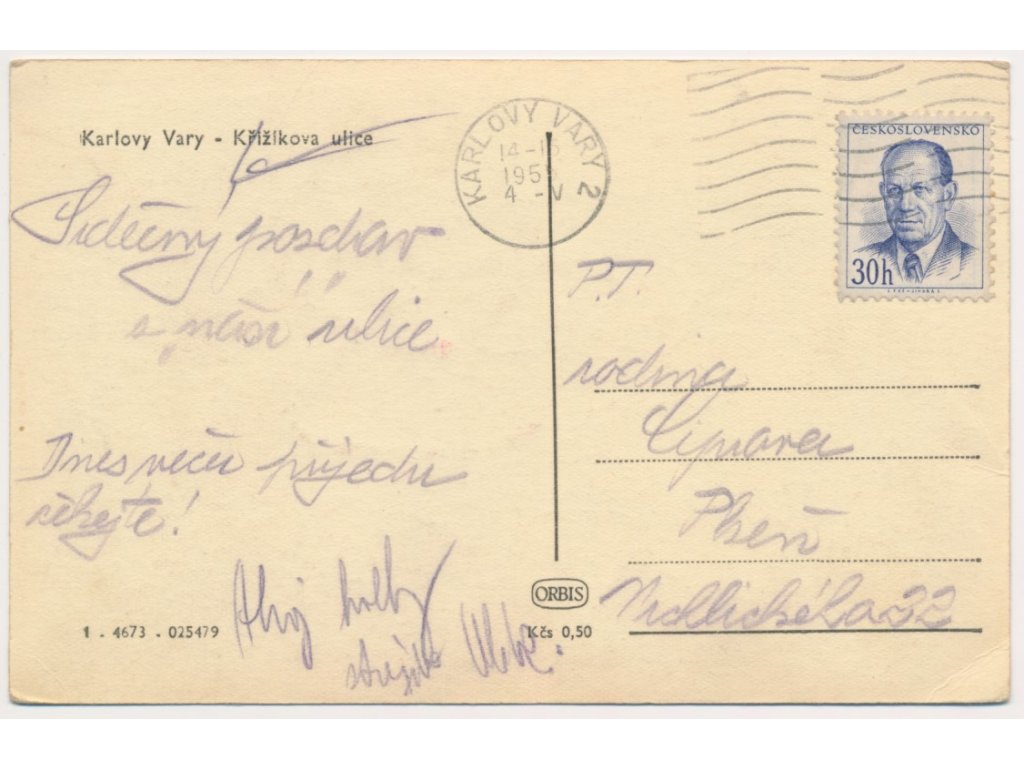 Karlovy Vary - Křižíkova ulice
KARLOVY VARY 2
14-1
195
4 -V
ČESKOSLOVENSKO
30h
Srdečný pozdrav
z "naší" ulice
Dnes večer přijedu
čekejte!
Ahoj holky
P.T.
rodina
Plzeň
Vrchlického 32
ORBIS
1 - 4673 - 025479
Kčs 0,50